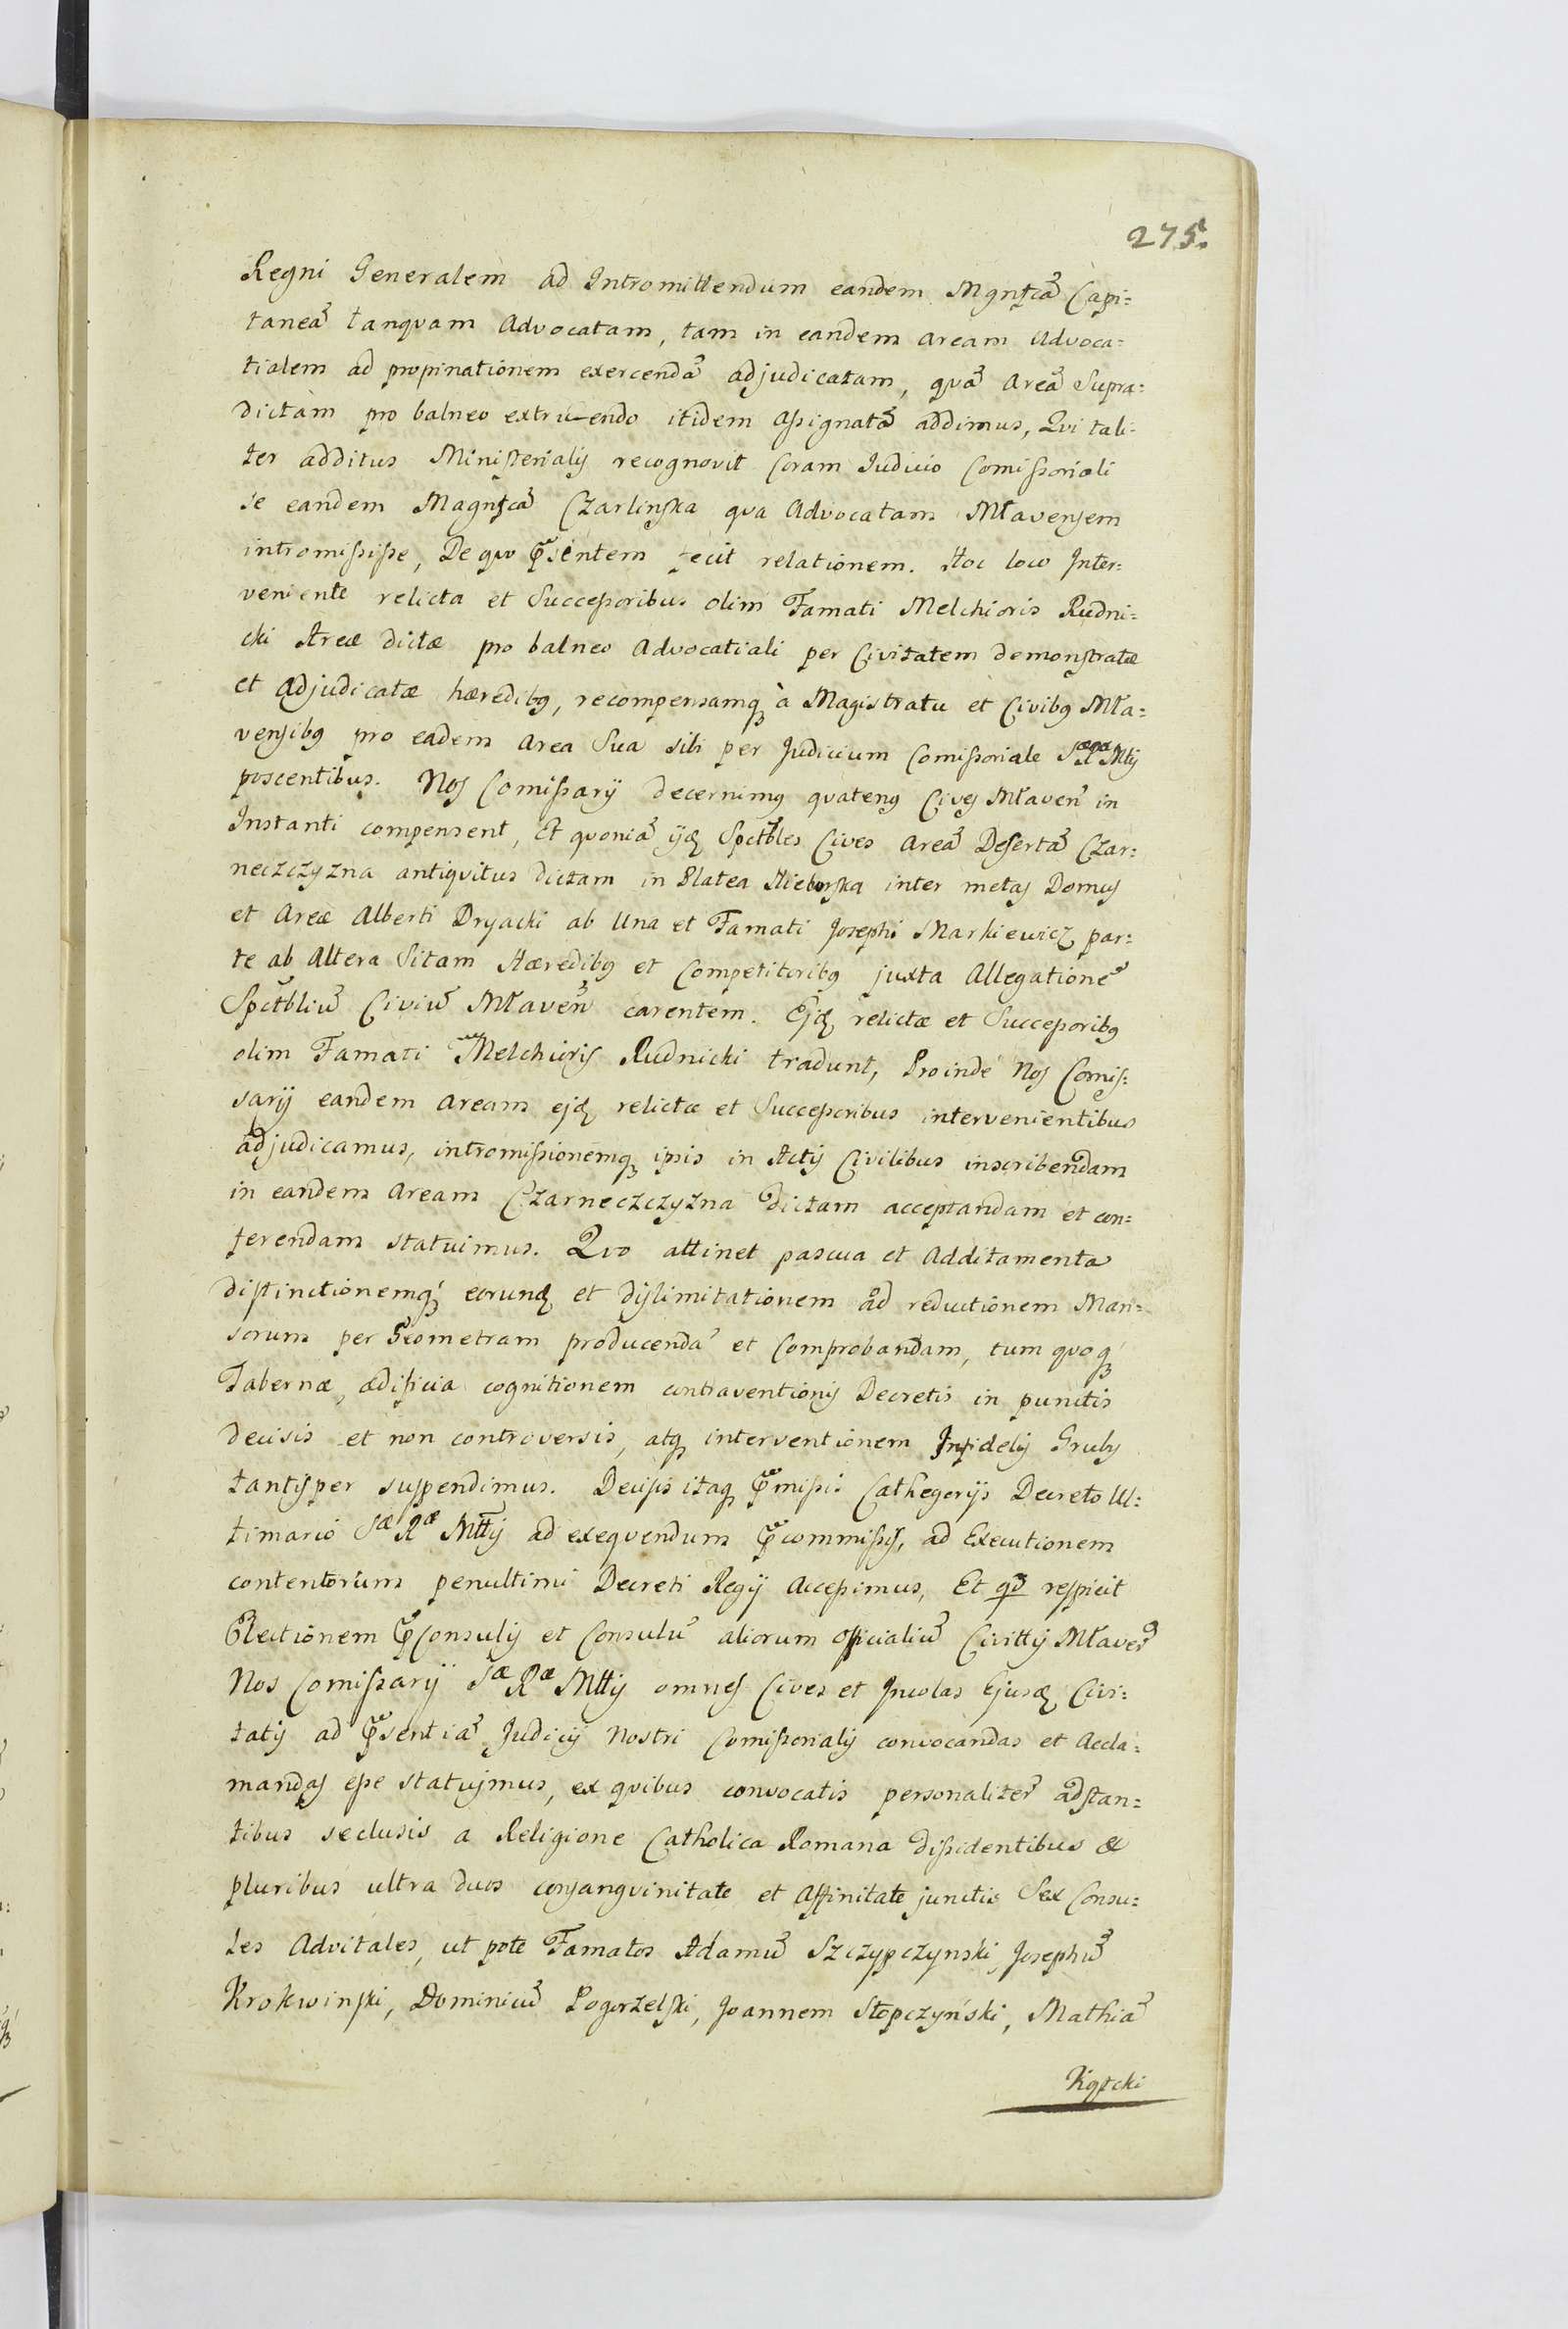 275.
Regni Generalem ad Intromittendum eandem Mgnfcã Capi=
taneã tanquam Advocatam, tam in eandem aream Advoca=
tialem ad propinationem exercendã adjudicatam, quã areã Supra=
dictam pro balneo extruendo itidem assignatã addimus, Qui tali=
ter additus Ministerialis recognovit Coram Iudicio Comissoriali
se eandem Magnfcã Czarlinska qua Advocatam Mławensem
intromisisse, De quo Pr̃sentem fecit relationem. Hoc loco Inter=
veniente relicta et Successoribus olim Famati Melchioris Rudni=
cki Areæ dictæ pro balneo Advocatiali per Civitatem demonstratæ
et adjudicatæ hæredibq, recompensamq à Magistratu et Civibq Mła=
vensibq pro eadem area Sua sibi per Judicium Comissoriale Sæ Ræ Mtis
poscentibus. Nos Comissarij decernimq quatenq Cives Mławen̄ in
Instanti compensent, Et quoniã ijd Spctbles Cives areã Desertã Czar=
neczczyzna antiquitus dictam in Platea Nieborska inter metas Domus
et Areæ Alberti Dryacki ab Una et Famati Josephi Markiewicz par=
te ab Altera Sitam Hæredibq et Competitoribq juxta Allegationẽ
Spctbliũ Civiũ Mławen̄ carentem. Ejd relictæ et Successoribq
olim Famati Melchioris Rudnicki tradunt, Proinde Nos Comis=
sarij eandem aream ejd relictæ et Successoribus intervenientibus
adjudicamus, intromissionemq ipsis in Actis Civilibus inscribendam
in eandem aream Czarneczczyzna dictam acceptandam et con=
ferendam statuimus. Quo attinet pascua et Additamenta
distinctionemq eorund et dislimitationem ad reductionem Man=
sorum per Geometram producendã et Comprobandam, tum quoq
Tabernæ, ædificia cognitionem contraventionis Decretis in punctis
decisis et non controversis, atq interventionem Infidelis Gruby
tantisper suspendimus. Decisis itaq Pr̃missis Cathegorijs Decreto Ul=
timario Sæ Ræ Mttis ad exequendum Pr̃commissis, ad Executionem
contentorum penultimi Decreti Regij Accessimus, Et qd respicit
Electionem Pr̃Consulis et Consulũ aliorum officialiũ Civittis Mławen̄
Nos Comissarij Sæ Ræ Mttis omnes Cives et Incolas Ejusd Civi=
tatis ad Pr̃sentiã Judicij Nostri Comissorialis convocandas et Accla=
mandas esse statuimus, ex quibus convocatis personaliter adstan=
tibus seclusis a Religione Catholica Romana dissidentibus &
pluribus ultra duos consanguinitate et Affinitate junctis Sex Consu=
les Advitales, ut pote Famatos Adamũ Szczypczynski, Josephũ
Krokwinski, Dominicũ Pogorzelski, Joannem Stopczyński, Mathiã